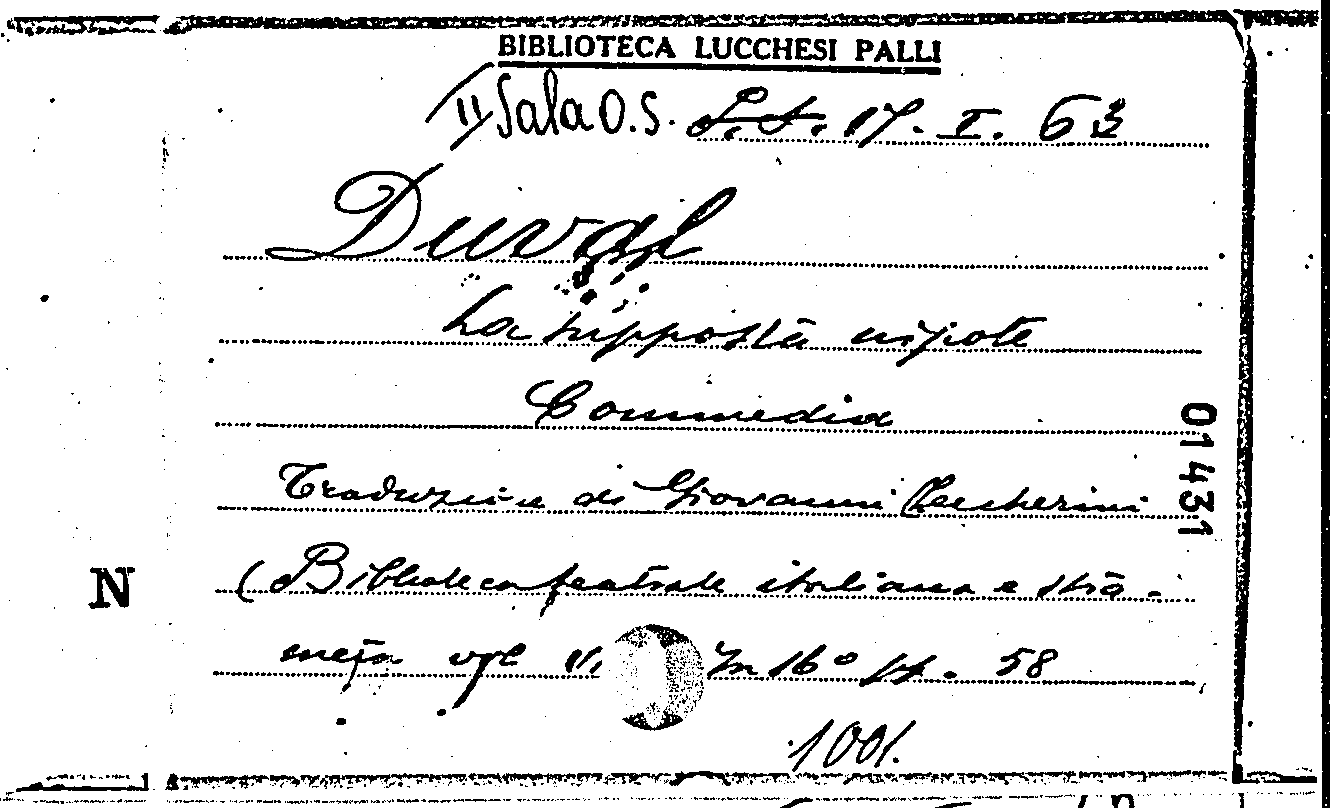 BIBLIOTECA LUCCHESI PALLI
II Sala O.S. S.S. 17. I. 63
Duval
La supposta nipote
Commedia
Traduzione di Giovanni Ceccherini
(Biblioteca teatrale italiana e stra-
niera vol V. In 16° pp. 58
1001.
01431
N